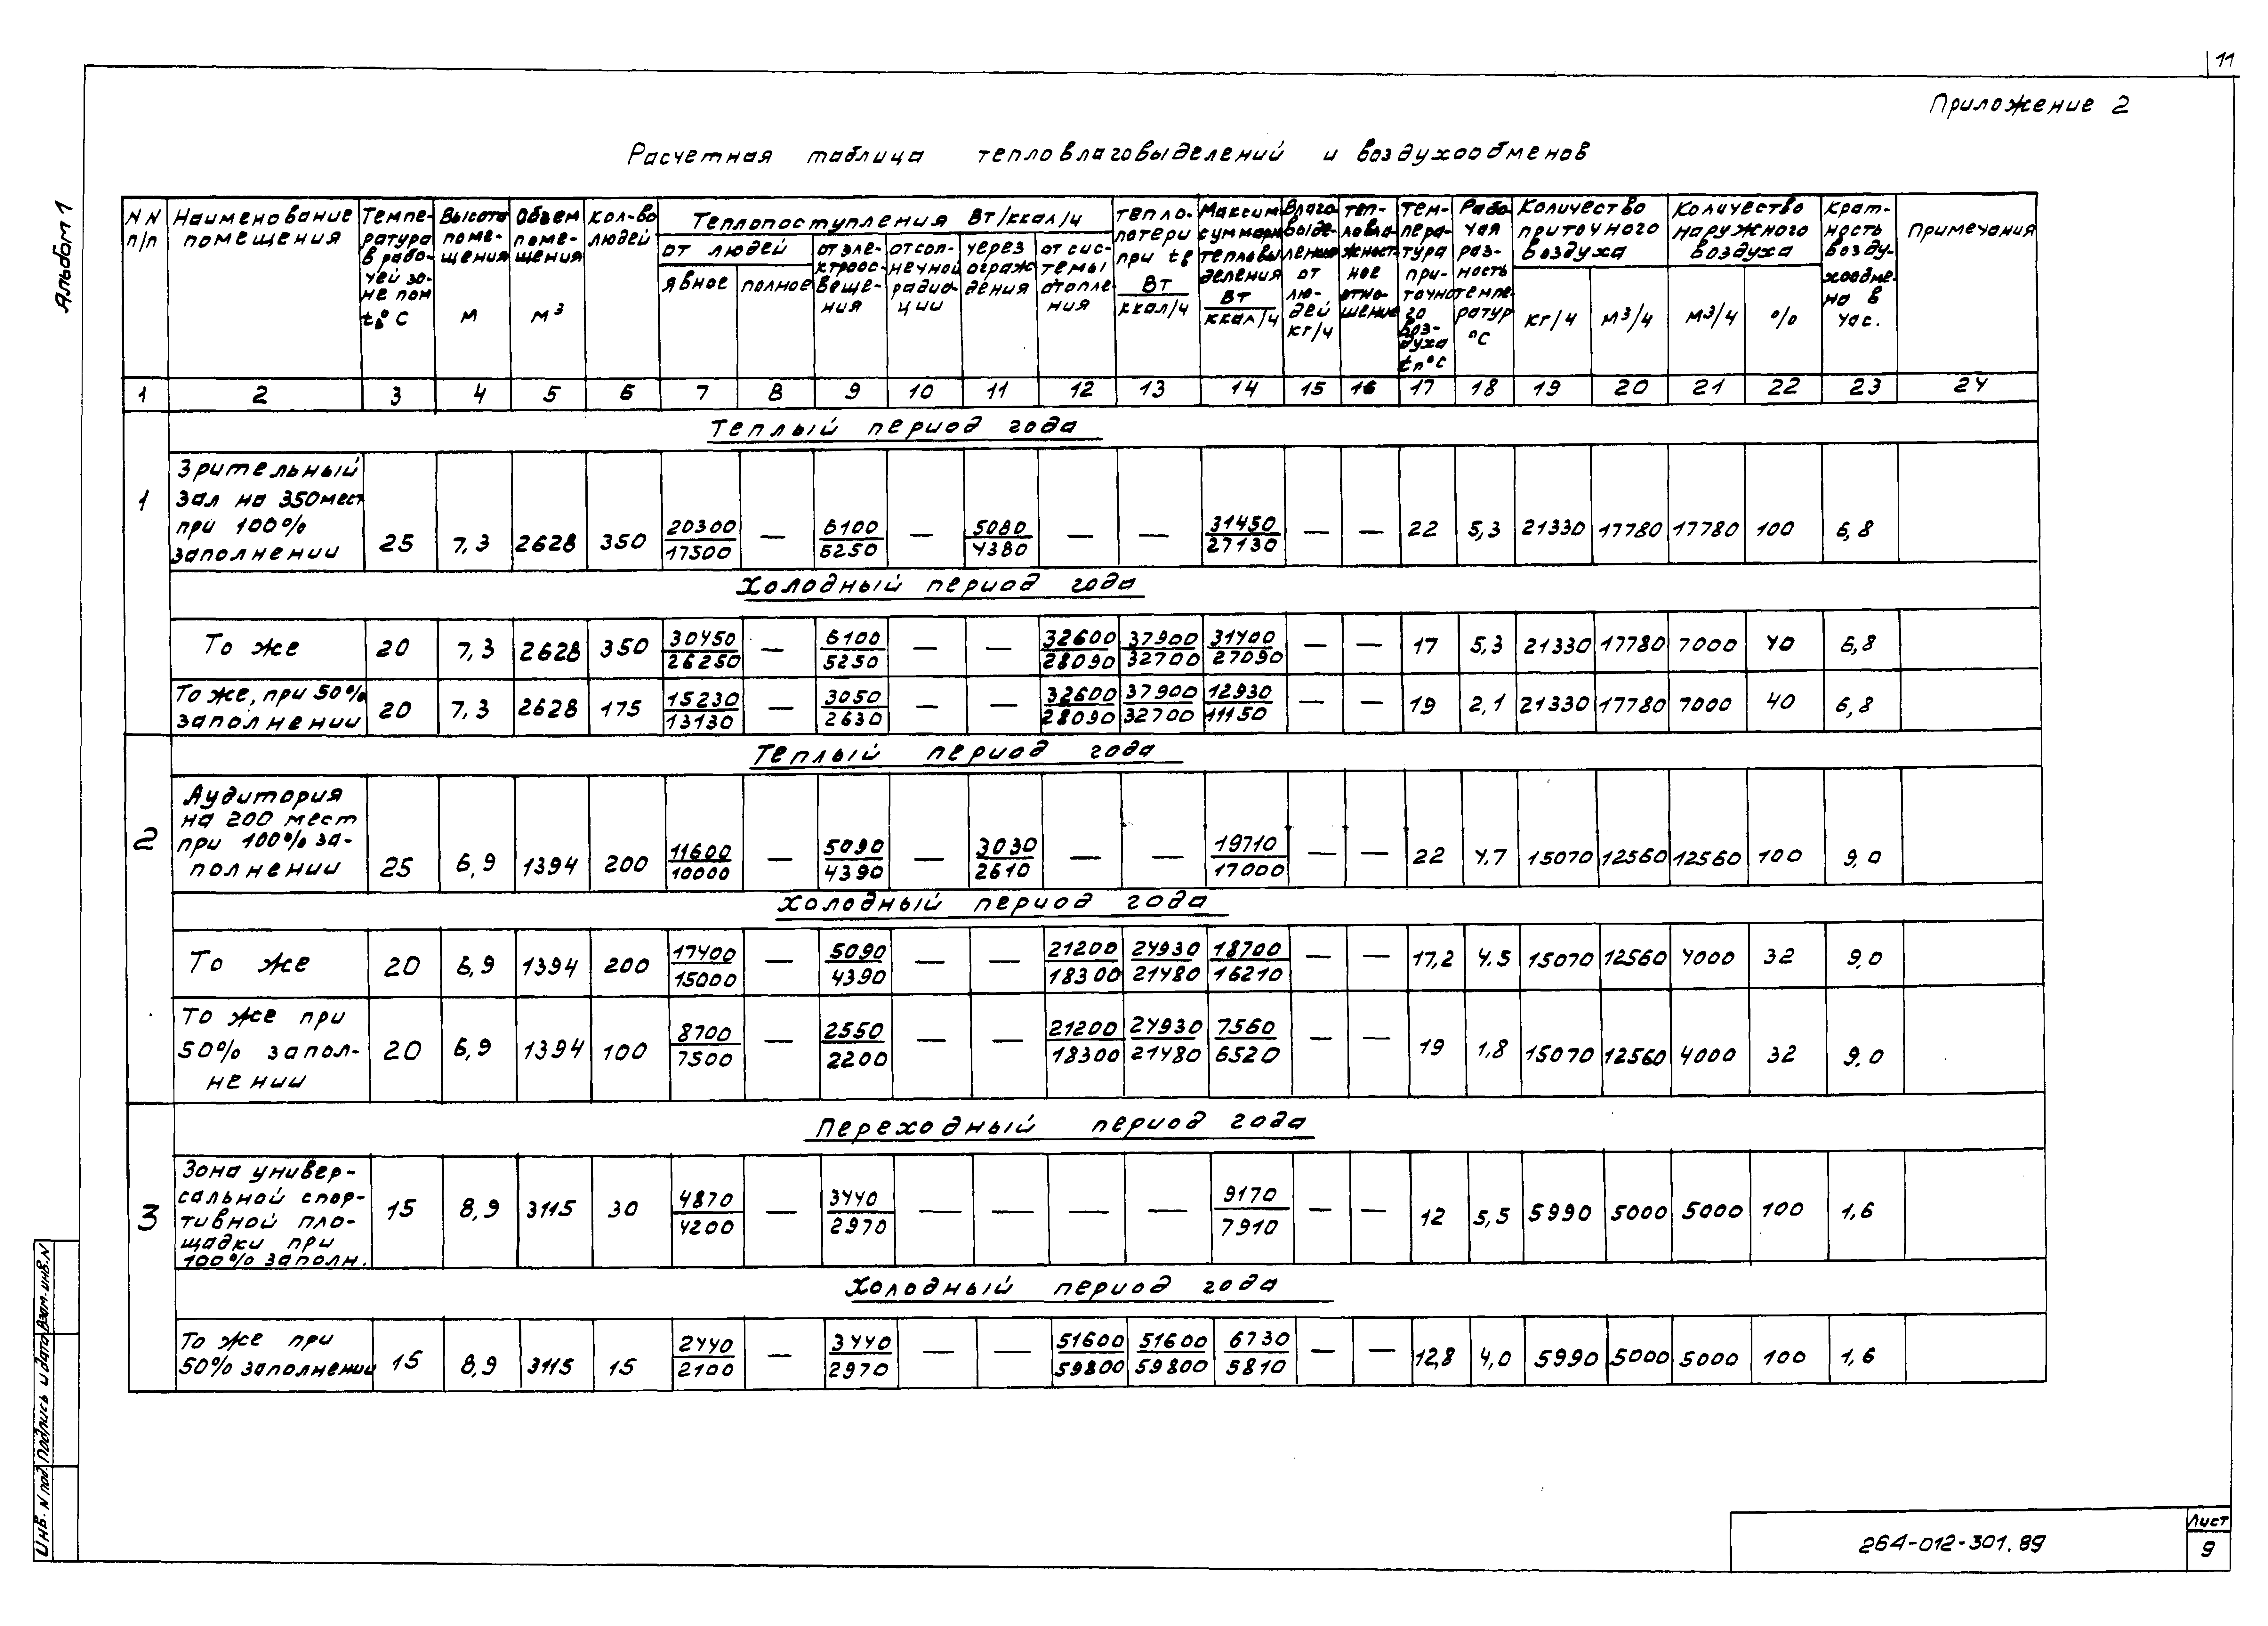 11
Приложение 2
Альбом 1
Расчетная таблица тепловлаговыделений и воздухообменов
NN п/п | Наименование помещения | Темпе-ратура в рабо-чей зо-не пом tв°C | Высота поме-щения м | Объем поме-щения м³ | Кол-во людей | Теплопоступления Вт/ккал/ч | тепло-потери при tв Вт/ккал/ч | Максим суммарн тепловы деления Вт/ккал/ч | Влаго выде-ления от лю-дей кг/ч | теп-ловла-жност-ное отно-шение | Тем-пера-тура при-точно го воз-духа tп°C | Рабо чая раз-ность темпе-ратур °C | Количество приточного воздуха | Количество наружного воздуха | Крат-ность возду-хообме-на в час. | Примечания
от людей | от эле-ктроос-веще-ния | от сол-нечной радиа-ции | через огражж дения | от сис-темы отопле-ния
явное | полное | кг/ч | м3/ч | м3/ч | %
1 | 2 | 3 | 4 | 5 | 6 | 7 | 8 | 9 | 10 | 11 | 12 | 13 | 14 | 15 | 16 | 17 | 18 | 19 | 20 | 21 | 22 | 23 | 24
Теплый период года
1 | Зрительный зал на 350мест при 100% заполнении | 25 | 7,3 | 2628 | 350 | 20300/17500 | — | 6100/5250 | — | 5080/4380 | — | — | 31450/27130 | — | — | 22 | 5,3 | 21330 | 17780 | 17780 | 100 | 6,8
Холодный период года
То же | 20 | 7,3 | 2628 | 350 | 30450/26250 | — | 6100/5250 | — | — | 32600/28090 | 37900/32700 | 31400/27090 | — | — | 17 | 5,3 | 21330 | 17780 | 7000 | 40 | 6,8
То же, при 50% заполнении | 20 | 7,3 | 2628 | 175 | 15230/13130 | — | 3050/2630 | — | — | 32600/28090 | 37900/32700 | 12930/11150 | — | — | 19 | 2,1 | 21330 | 17780 | 7000 | 40 | 6,8
Теплый период года
2 | Аудитория на 200 мест при 100% за-полнении | 25 | 6,9 | 1394 | 200 | 11600/10000 | — | 5090/4390 | — | 3030/2610 | — | — | 19710/17000 | — | — | 22 | 4,7 | 15070 | 12560 | 12560 | 100 | 9,0
Холодный период года
То же | 20 | 6,9 | 1394 | 200 | 17400/15000 | — | 5090/4390 | — | — | 21200/18300 | 24930/21480 | 18700/16210 | — | — | 17,2 | 4.5 | 15070 | 12560 | 4000 | 32 | 9,0
То же при 50% запол-нении | 20 | 6,9 | 1394 | 100 | 8700/7500 | — | 2550/2200 | — | — | 21200/18300 | 24930/21480 | 7560/6520 | — | — | 19 | 1,8 | 15070 | 12560 | 4000 | 32 | 9,0
Переходный период года
3 | Зона универ-сальной спор-тивной пло-щадки при 100% заполн. | 15 | 8,9 | 3115 | 30 | 4870/4200 | — | 3440/2970 | — | — | — | — | 9170/7910 | — | — | 12 | 5,5 | 5990 | 5000 | 5000 | 100 | 1,6
Холодный период года
То же при 50% заполнении | 15 | 8,9 | 3115 | 15 | 2440/2100 | — | 3440/2970 | — | — | 51600/59800 | 51600/59800 | 6730/5810 | — | — | 12,8 | 4,0 | 5990 | 5000 | 5000 | 100 | 1,6
Инв. N под. Подпись и дата Взам. инв. N
264-012-301.89
Лист
9